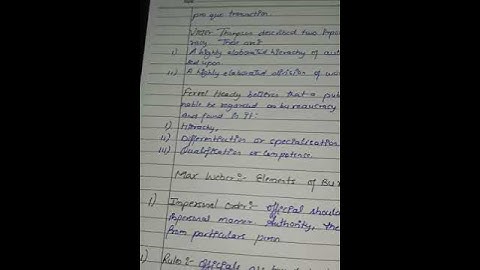 pro quo transaction.
Victor Thompson described two impor
racy These are:
i) A highly elaborated hierarchy of aut
ii) A highly elaborated division of wor
Ferrel Heady believes that a pub
nable be regarded as bureaucracy
And found in it:
i) Hierarchy,
ii) Differentiation or specialisation
iii) Qualification or competence.
Max Weber:- Elements of Bu
1) Impersonal Order:- official shoul
personal manner. Authority, the
from particulars person
Rules:- officials